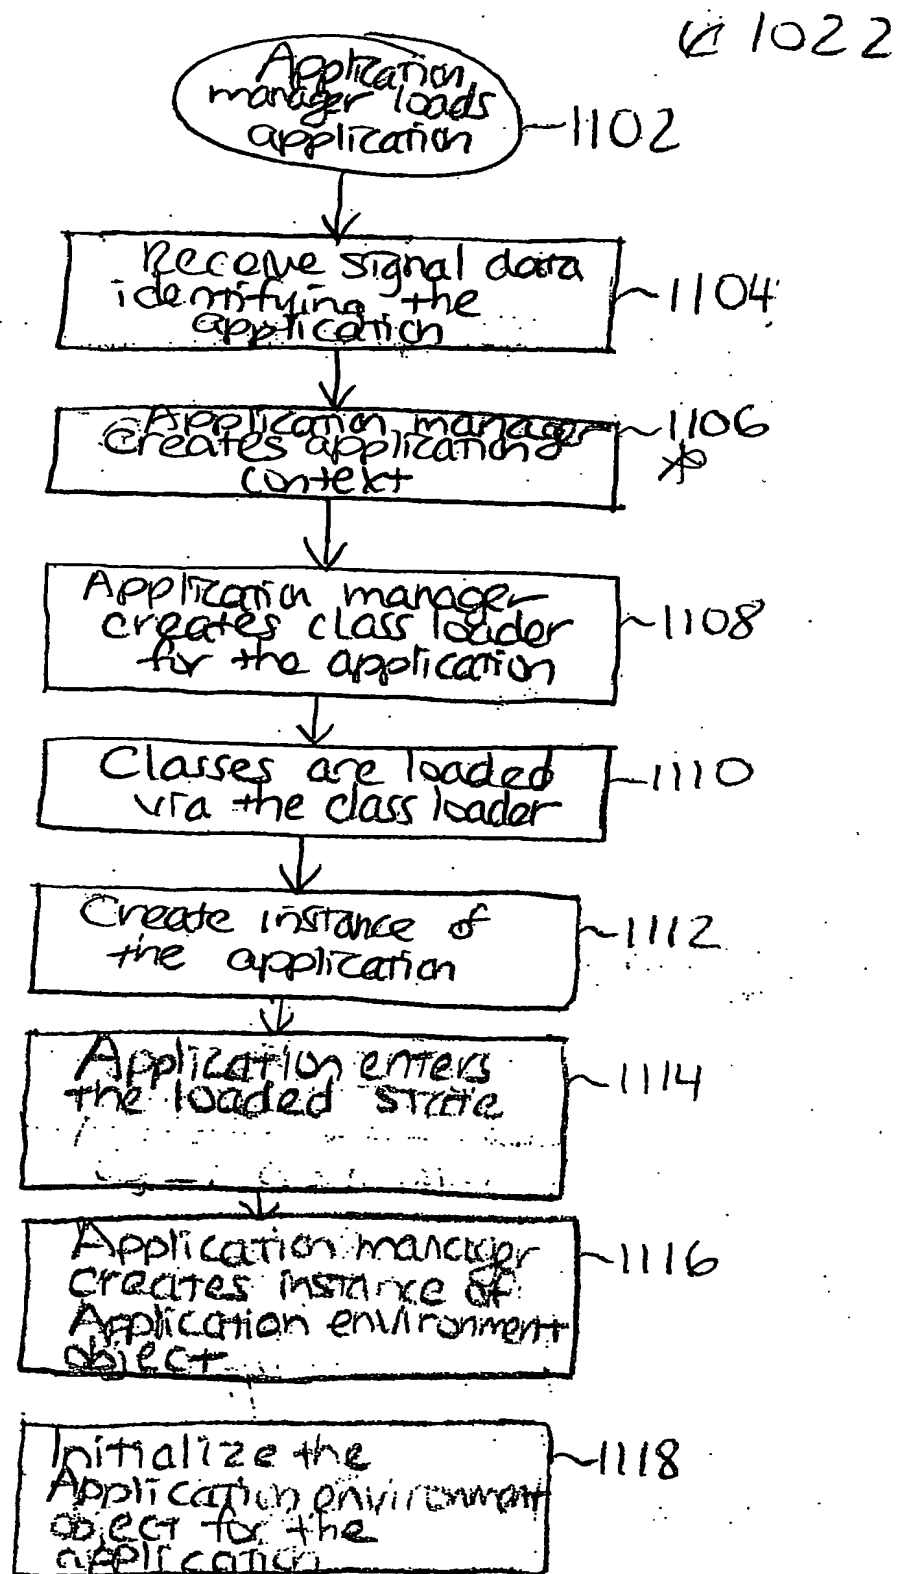 1022
Application
manager loads
application
1102
Receive signal data
identifying the
application
1104
Application manager
creates application
context
1106
Application manager
creates class loader
for the application
1108
Classes are loaded
via the class loader
1110
Create instance of
the application
1112
Application enters
the loaded state
1114
Application manager
creates instance of
Application environment
object
1116
Initialize the
Application environment
object for the
application
1118